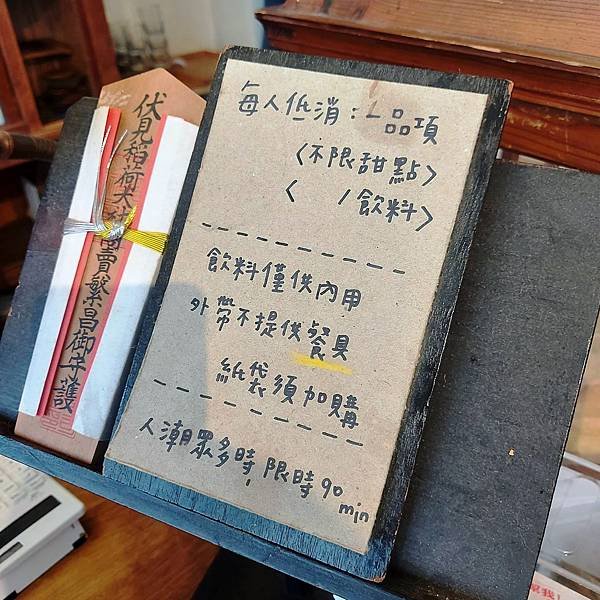 每人低消:1品項
<不限甜點>
< /飲料>
飲料僅供內用
外帶不提供餐具
紙袋須加購
人潮眾多時,限時90min
伏見稻荷大社商賣繁昌御守護